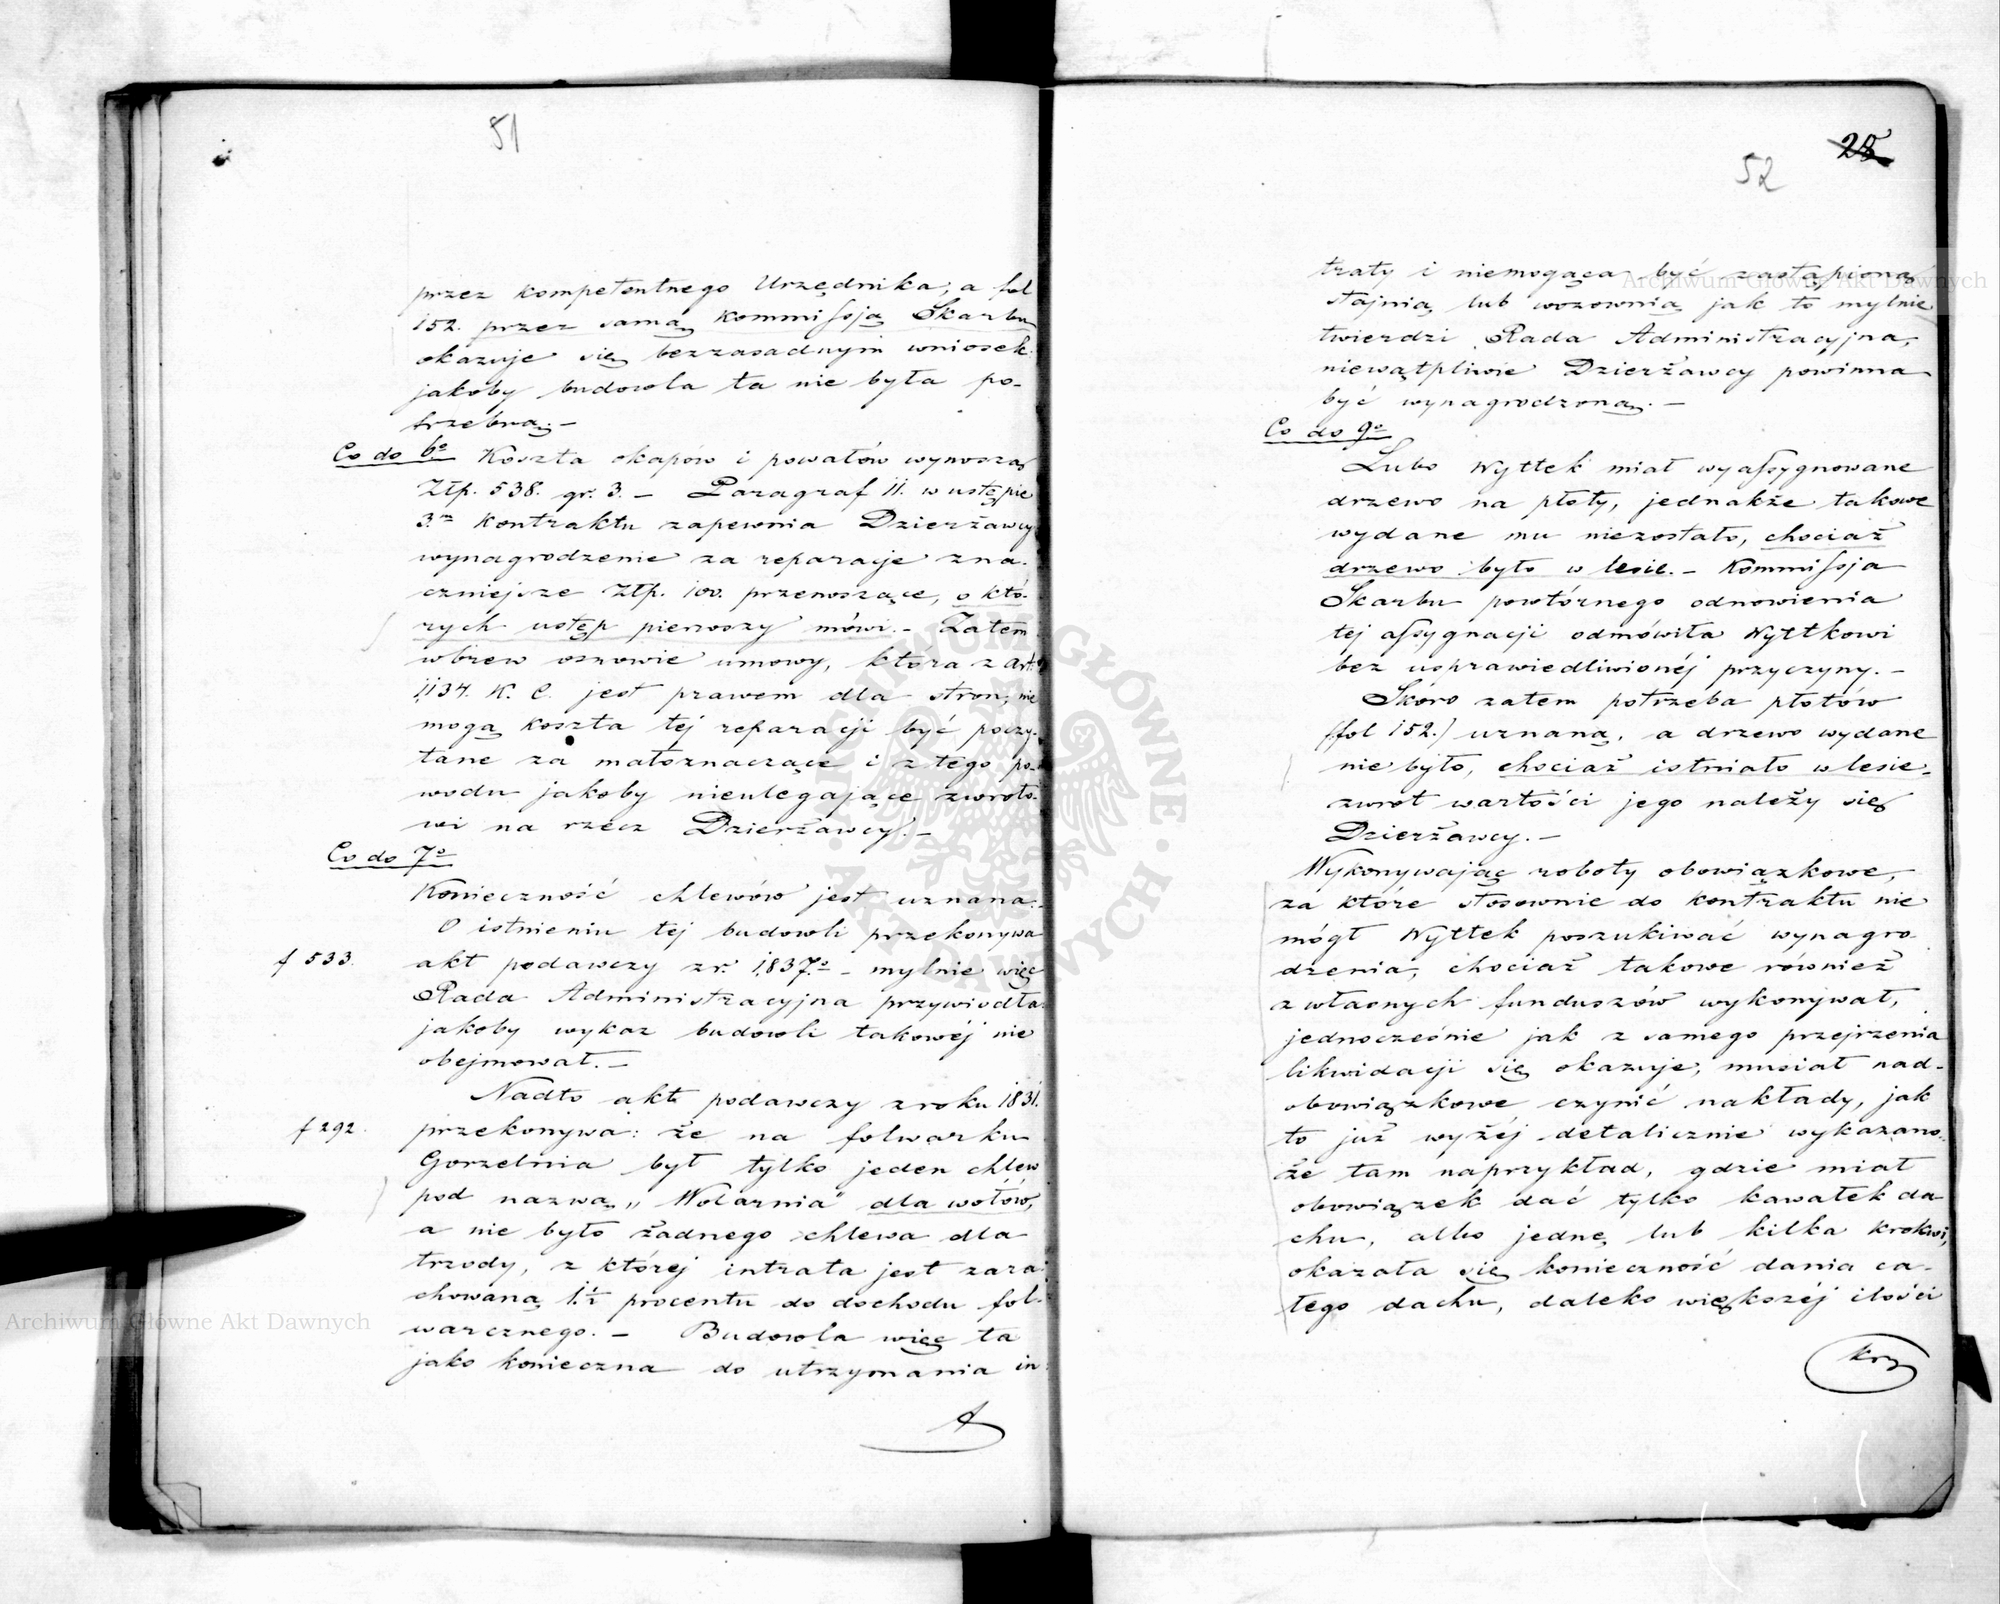 51
przez kompetentnego Urzędnika, a fol
152. przez samą Kommissją Skarbu
okazuje się bezzasadnym wniosek
jakoby budowla ta nie była po-
trzebną. —
Co do 6º Koszta okapów i powałów wynoszą
Złp. 538. gr. 3. — Paragraf 11. w ustępie
3.m Kontraktu zapewnia Dzierżawcy
wynagrodzenie za reparacje zna-
czniejsze Złp. 100. przenoszące, o któ-
rych ustęp pierwszy mówi. — Zatem
wbrew osnowie umowy, która z art.
1134. K. C. jest prawem dla stron, nie
mogą koszta tej reparacji być poczy-
tane za małoznaczące i z tego po-
wodu jakoby nieulegające zwroto-
wi na rzecz Dzierżawcy. —
Co do 7º
Konieczność chlewów jest uznana. —
O istnieniu tej budowli przekonywa
f 533. akt podawczy z r. 1837º — mylnie więc
Rada Administracyjna przywiodła
jakoby wykaz budowli takowéj nie
obejmował. —
Nadto akt podawczy z roku 1831.
f 292. przekonywa: że na folwarku
Gorzelnia był tylko jeden chlew
pod nazwą „Wolarnia" dla wołów,
a nie było żadnego chlewa dla
trzody, z której intrata jest zara-
chowaną 1½ procentu do dochodu fol-
warcznego. — Budowla więc ta
jako konieczna do utrzymania in-
25
52
traty i niemogąca być zastąpioną
stajnią lub wozownią jak to mylnie
twierdzi Rada Administracyjna,
niewątpliwie Dzierżawcy powinna
być wynagrodzoną. —
Co do 9º
Lubo Wyttek miał wyassygnowane
drzewo na płoty, jednakże takowe
wydane mu niezostało, chociaż
drzewo było w lesie. — Kommissja
Skarbu powtórnego odnowienia
tej assygnacji odmówiła Wyttkowi
bez usprawiedliwionéj przyczyny. —
Skoro zatem potrzeba płotów
(fol 152.) uznaną, a drzewo wydane
nie było, chociaż istniało w lesie,
zwrot wartości jego należy się
Dzierżawcy. —
Wykonywając roboty obowiązkowe,
za które stosownie do kontraktu nie
mógł Wyttek poszukiwać wynagro-
dzenia, chociaż takowe również
z własnych funduszów wykonywał,
jednocześnie jak z samego przejrzenia
likwidacji się okazuje, musiał nad-
obowiązkowe czynić nakłady, jak
to już wyżéj detalicznie wykazano.
że tam naprzykład, gdzie miał
obowiązek dać tylko kawałek da-
chu, albo jedne lub kilka krokwi,
okazała się konieczność dania ca-
łego dachu, daleko większéj ilości
krz
Archiwum Główne Akt Dawnych
Archiwum Główne Akt Dawnych
ARCHIWUM GŁÓWNE · AKT DAWNYCH ·